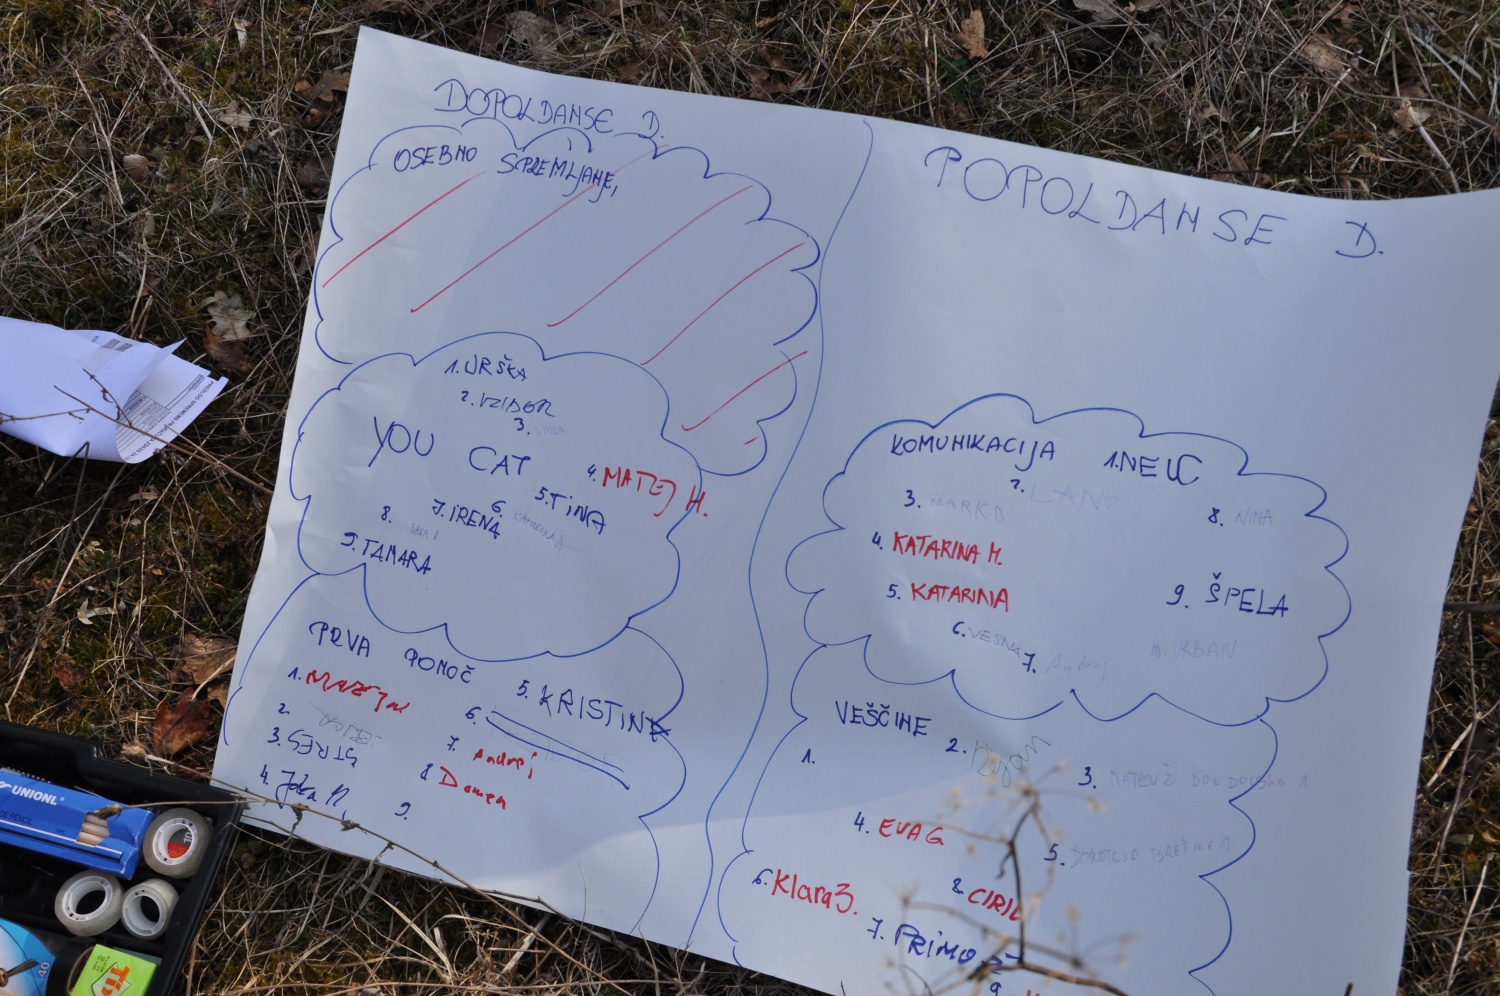 DOPOLDANSE D.
OSEBNO SPREMLJANJE
1. URŠKA
2. IZIDOR
3.
YOU CAT
4. MATEJ H.
5. TINA
6. KATARINA
7. IRENA
8. SARA R.
9. TAMARA
PRVA POMOČ
1.
2.
3. STRES
4.
5. KRISTINA
6.
7. Andrej
8 Domen
9.
POPOLDANSE D.
KOMUNIKACIJA
1. NEIC
2. LANO
3. MARKO
4. KATARINA M.
5. KATARINA
6. VESNA
7. Andrej
8. NINA
9. ŠPELA
10. URBAN
VEŠČINE
1.
2. Dejan
3. MATEVŽ
4. EVA G
5. DOROTEJA
6. Klara 3.
7. PRIMOŽ
8. CIRIL
9
UNIONL